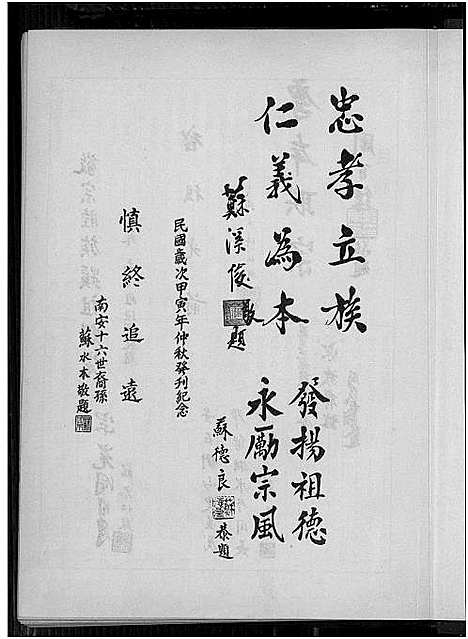 忠孝立族
仁義為本
蘇溪俊敬題
發揚祖德
永勵宗風
蘇德良恭題
民國歲次甲寅年仲秋發刊紀念
慎終追遠
南安十六世裔孫
蘇水本敬題